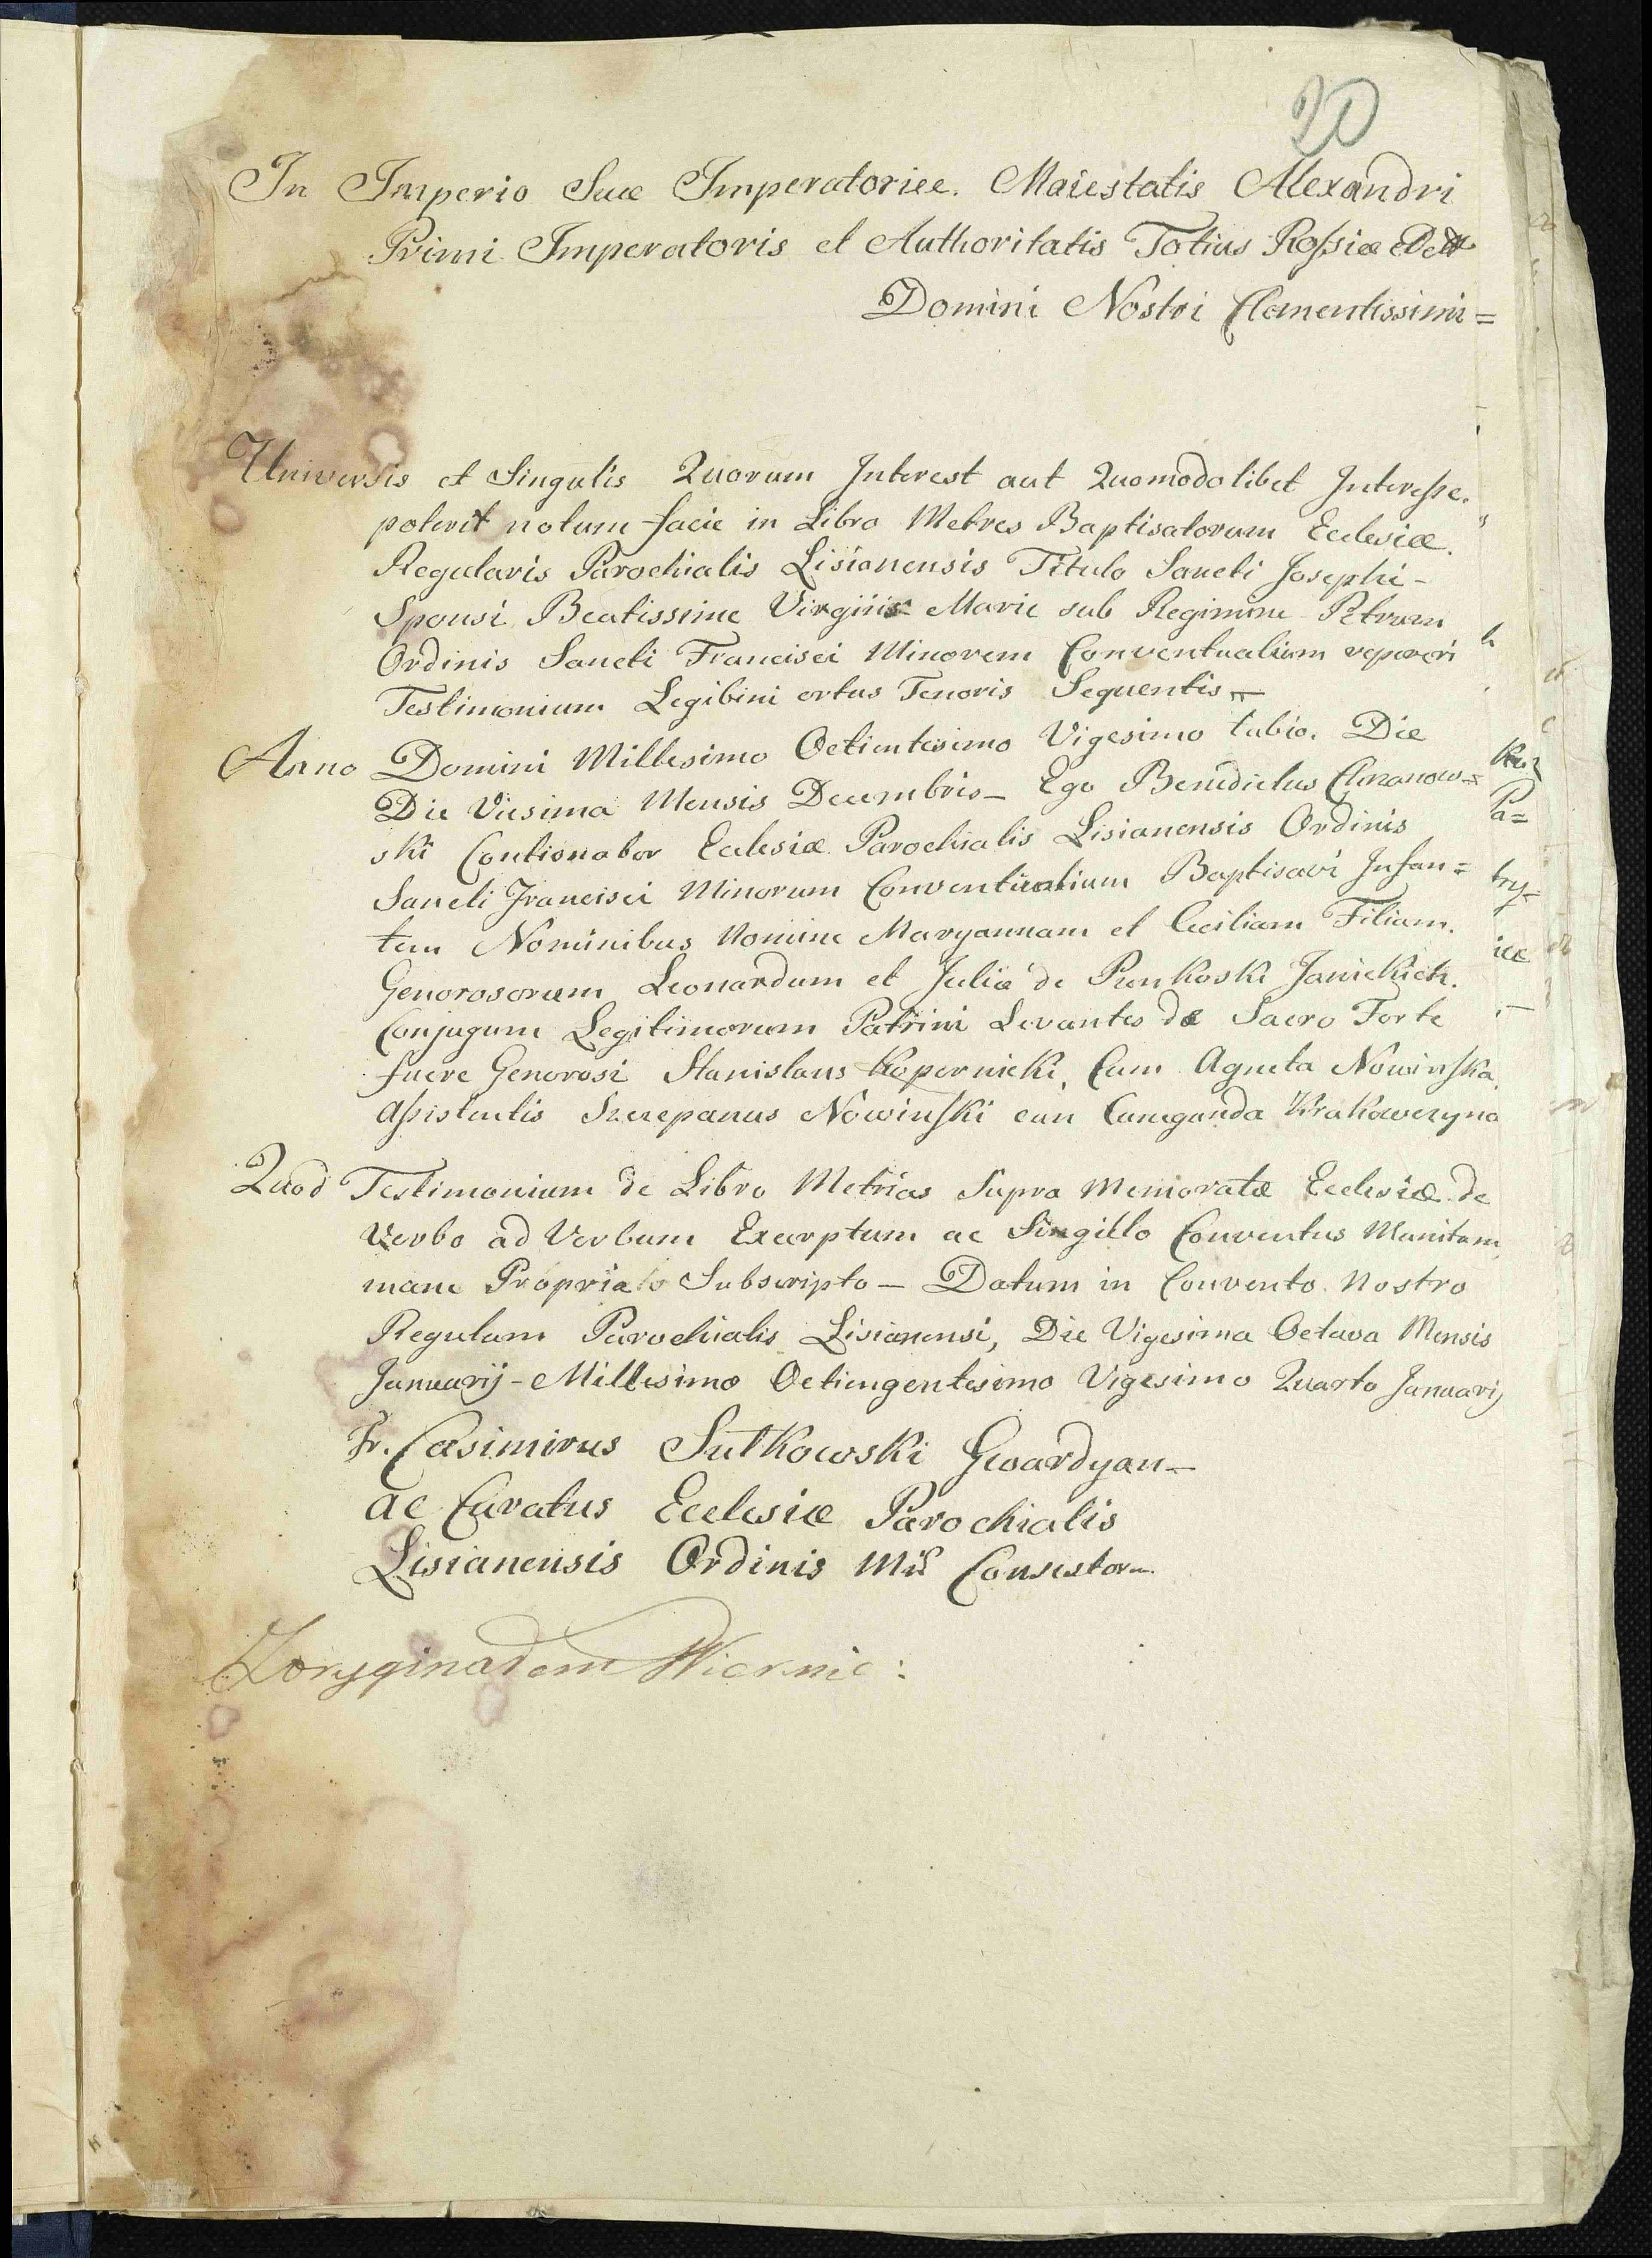 20
In Imperio Suæ Imperatoriee. Maiestatis Alexandri
Primi Imperatoris et Authoritatis Totius Rossiæ
Domini Nostri Clementissimi=
Universis et Singulis Quorum Interest aut Quomodolibet Interesse.
poterit notum facie in Libro Metres Baptisatorum Ecclesiæ.
Regularis Parochialis Lisianensis Titulo Sancti Josephi-
Sponsi Beatissime Virginis Marie sub Regimine Patrum
Ordinis Sancti Francisci Minorem Conventualium reperiri
Testimonium Legibini ortus Tenoris Sequentis
Anno Domini Millesimo Octientesimo Vigesimo tubio. Die
Die Vicsima Mensis Decembris- Ego Benedictus Chrzanow=
ski Contionator Ecclesiæ Parochialis Lisianensis Ordinis
Sancti Francisci Minorum Conventualium Baptisavi Infan=
tem Nominibus Nomine Maryannam et Ceciliam Filiam.
Generosorum Leonardum et Julia de Pronkoski Janickich.
Conjugum Legitimorum Patrini Levantes de Sacro Forte
fuere Generosi Stanislaus Kopernicki, Cum Agneta Nowinska.
Assistentis Szczepanus Nowinski cun Cunegunda Krakowczyna
Quod Testimonium de Libro Metrias Supra Memoratæ Ecclesiæ de
Verbo ad Verbum Excerptum ac Singillo Conventus Munitum
manu Propria Subscripto- Datum in Convento Nostro
Regulam Parochialis Lisianensi, Die Vigesima Octava Mensis
Januarij- Millesimo Octingentesimo Vigesimo Quarto Januarij
Fr. Casimirus Sutkowski Gwardyan-
ac Curatus Ecclesiæ Parochialis
Lisianensis Ordinis
Zoryginałem Wiernie: